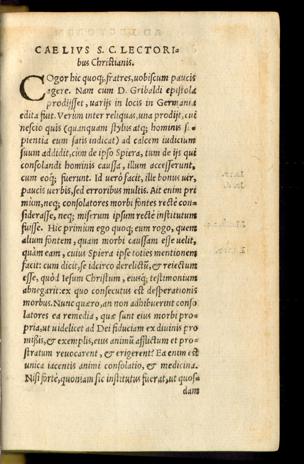 CAELIVS S. C. LECTORI
bus Christianis.
COgor hic quoq;, fratres, uobiscum paucis
agere. Nam cum D. Gribaldi epistola
prodijsset, uarijs in locis in Germania
edita fuit. Verùm inter reliquas, una prodijt, cui
nescio quis (quanquam stylus atq; hominis
pientia eum satis indicat) ad calcem iudicium
suum addidit, cùm de ipso Spiera, tum de ijs qui
consolandi hominis caussa, illum accesserunt,
cum eoq; fuerunt. Id uerò facit, ille bonus uer,
paucis uerbis, sed erroribus multis. Ait enim pri
mùm, neq; consolatores morbi fontes rectè con-
siderasse, neq; miserum ipsum rectè institutum
fuisse. Hic primùm ego quoq; eum rogo, quem
alium fontem, quam morbi caussam esse uelit,
quàm eam, cuius Spiera ipse toties mentionem
facit: cum dicit, se idcirco derelictũ, & reiectum
esse, quòd Iesum Christum, eiusq́; testimonium
abnegarit: ex quo consecutus est desperationis
morbus. Nunc quæro, an non adhibuerint conso
latores ea remedia, quæ sunt eius morbi pro-
pria, ut uidelicet ad Dei fiduciam ex diuinis pro
mißis, & exemplis, eius animũ afflictum et pro-
stratum reuocarent, & erigerent? Ea enim est
unica iacentis animi consolatio, & medicina.
Nisi fortè, quoniam sic institutus fuerat, ut quos
dam